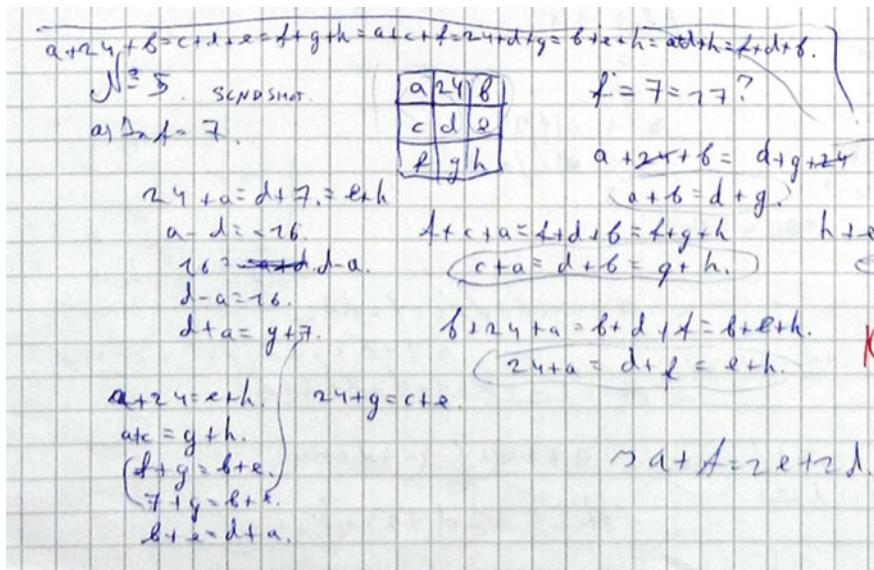 a+24+b=c+d+e=f+g+h=a+c+f=24+d+g=b+e+h=a+d+h=f+d+b.
№ 5.
a 24 b
c d e
f g h
f = 7 = 17?
f = 7.
a+24+b = d+g+24
a+b=d+g.
24+a=d+7.=e+h
a-d=-16.
16= d-a.
d-a=16.
d+a=g+7.
f+c+a=f+d+b=f+g+h
c+a=d+b=g+h.
h+e
b+24+a=b+d+f=b+e+h.
24+a = d+f = e+h.
a+24=e+h.
24+g=c+e.
a+c=g+h.
f+g=b+e.
7+g=b+e.
b+e=d+a.
a+f=2e+2d.